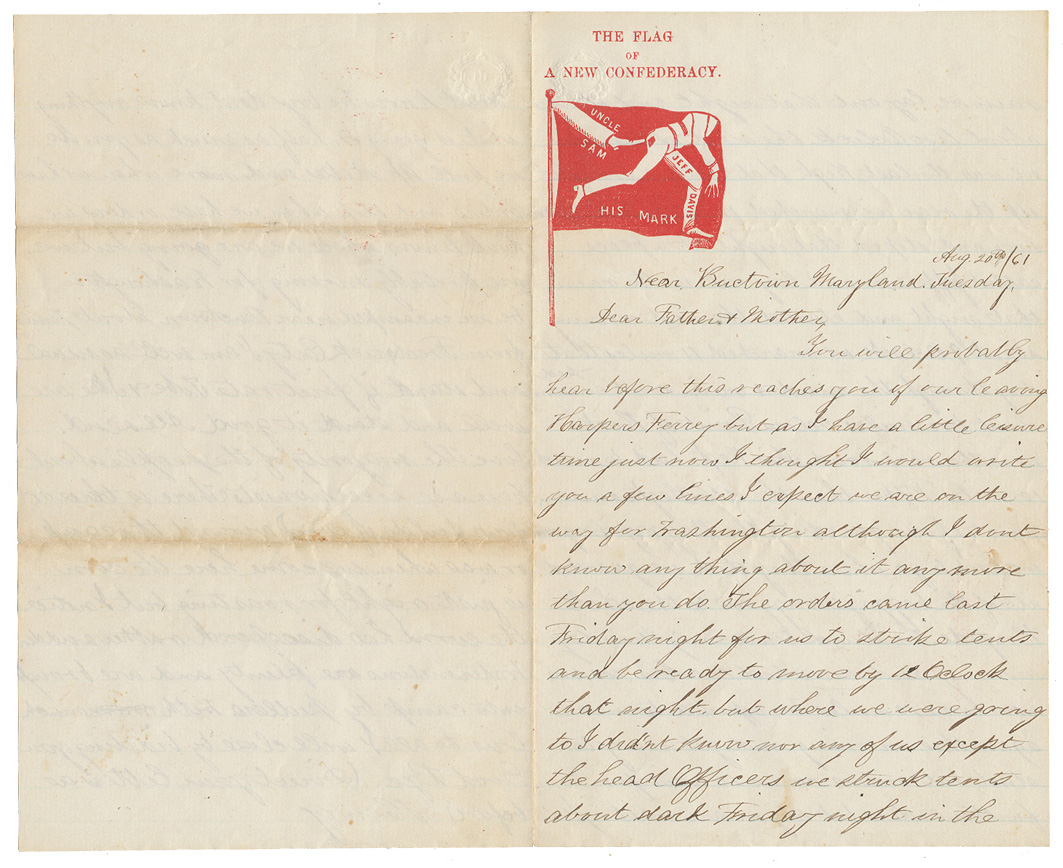 THE FLAG
OF
A NEW CONFEDERACY.
UNCLE
SAM
JEFF
DAVIS
HIS MARK
Aug. 20th/61
Near Buctown Maryland. Tuesday,
Dear Father & Mother,
You will probably
hear before this reaches you of our leaving
Harpers Ferrey but as I have a little leisure
time just now I thought I would write
you a few lines I expect we are on the
way for Washington although I dont
know any thing about it any more
than you do. The orders came last
Friday night for us to strike tents
and be ready to move by 12 Oclock
that night, but where we were going
to I didnt know nor any of us except
the head Officers we struck tents
about dark Friday night in the